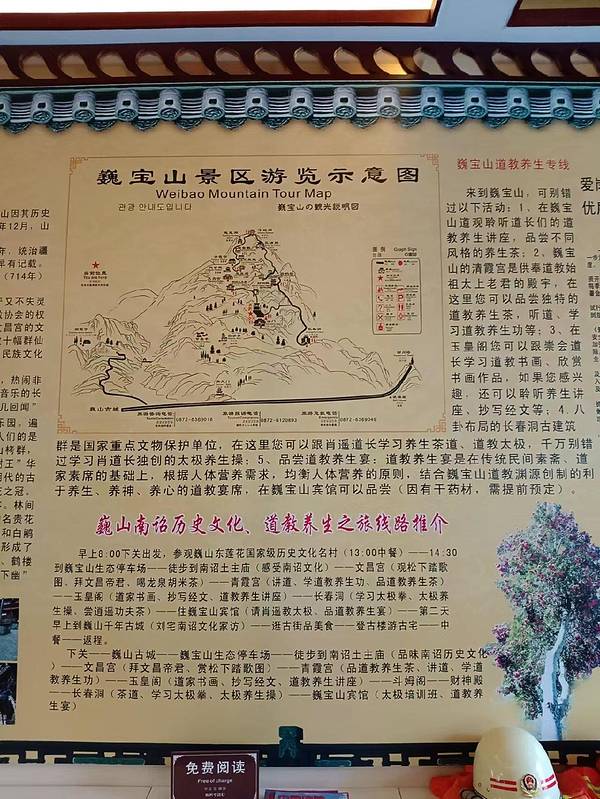 巍宝山景区游览示意图
Weibao Mountain Tour Map
관광 안내도입니다
巍宝山の観光説明図
图例
Graph Sign
巍山古城
0872-6369018
0872-6120893
0872-6369046
山因其历史
年12月，山
年，统治疆
早有记载。
（714年）
产又不失灵
协会的权
文昌宫的文
十幅群仙
民族文化
，热闹非
音乐的长
几回闻”
乐园，遍
人们的是
山栲群，
树王”华
月代的古
花之冠。
，林间
名贵花
和白鹇
形成了
、鹤楼
下幽”
巍宝山道教养生专线
来到巍宝山，可别错
过以下活动：1、在巍宝
山道观聆听道长们的道
教养生讲座，品尝不同
风格的养生茶；2、巍宝
山的清霞宫是供奉道教始
祖太上老君的殿宇，在
这里您可以品尝独特的
道教养生茶，听道、学
习道教养生功等；3、在
玉皇阁您可以跟崇会道
长学习道教书画、欣赏
书画作品，如果您感兴
趣，还可以聆听养生讲
座、抄写经文等；4、八
卦布局的长春洞古建筑
群是国家重点文物保护单位，在这里您可以跟肖遥道长学习养生茶道、道教太极，千万别错
过学习肖道长独创的太极养生操；5、品尝道教养生宴：道教养生宴是在传统民间素斋、道
家素席的基础上，根据人体营养需求，均衡人体营养的原则，结合巍宝山道教渊源创制的利
于养生、养神、养心的道教宴席，在巍宝山宾馆可以品尝（因有干药材，需提前预定）。
巍山南诏历史文化、道教养生之旅线路推介
早上8:00下关出发，参观巍山东莲花国家级历史文化名村（13:00中餐）——14:30
到巍宝山生态停车场——徒步到南诏土主庙（感受南诏文化）——文昌宫（观松下踏歌
图、拜文昌帝君、喝龙泉胡米茶）——青霞宫（讲道、学道教养生功、品道教养生茶）
——玉皇阁（道家书画、抄写经文、道教养生讲座）——长春洞（学习太极拳、太极养
生操、尝逍遥功夫茶）——住巍宝山宾馆（请肖遥教太极、品道教养生宴）——第二天
早上到巍山千年古城（刘宅南诏文化家访）——逛古街品美食——登古楼游古宅——中
餐——返程。
下关——巍山古城——巍宝山生态停车场——徒步到南诏土主庙（品味南诏历史文化
）——文昌宫（拜文昌帝君、赏松下踏歌图）——青霞宫（品道教养生茶、讲道、学道
教养生功）——玉皇阁（道家书画、抄写经文、道教养生讲座）——斗姆阁——财神殿
——长春洞（茶道、学习太极拳、太极养生操）——巍宝山宾馆（太极培训班、道教养
生宴）
爱岗
优质
免费阅读
Free of charge